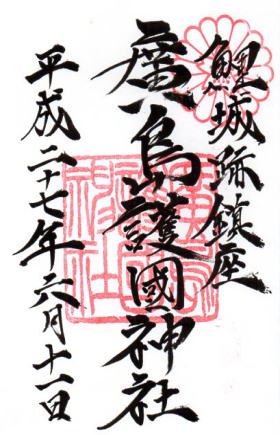 鯉城跡鎮座
廣島護國神社
平成二十七年六月十一日